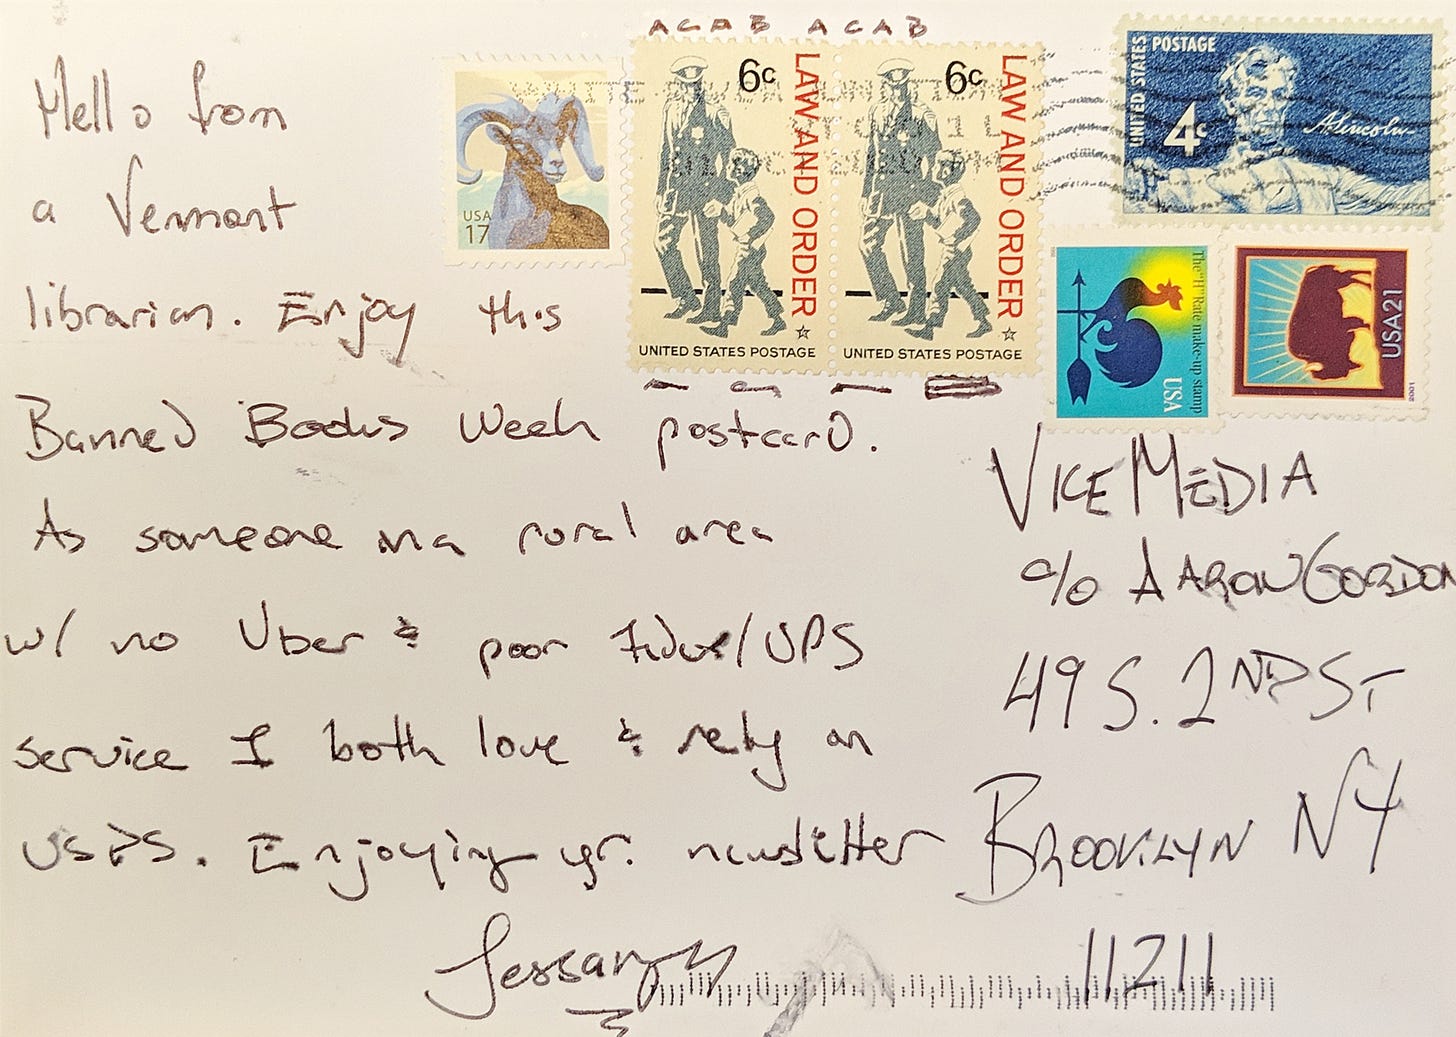 ACAB ACAB
Hello from
a Vermont
librarian. Enjoy this
Banned Books Week postcard.
As someone in a rural area
w/ no Uber & poor Fedex/UPS
service I both love & rely on
USPS. Enjoying yr. newsletter
Jessamyn
USA
17
6c
LAW AND ORDER
UNITED STATES POSTAGE
6c
LAW AND ORDER
UNITED STATES POSTAGE
UNITED STATES POSTAGE
4c
A. Lincoln
The "H" Rate make-up stamp
USA
USA 21
2001
VICE MEDIA
c/o AARON GORDON
49 S. 2ND ST
BROOKLYN NY
11211